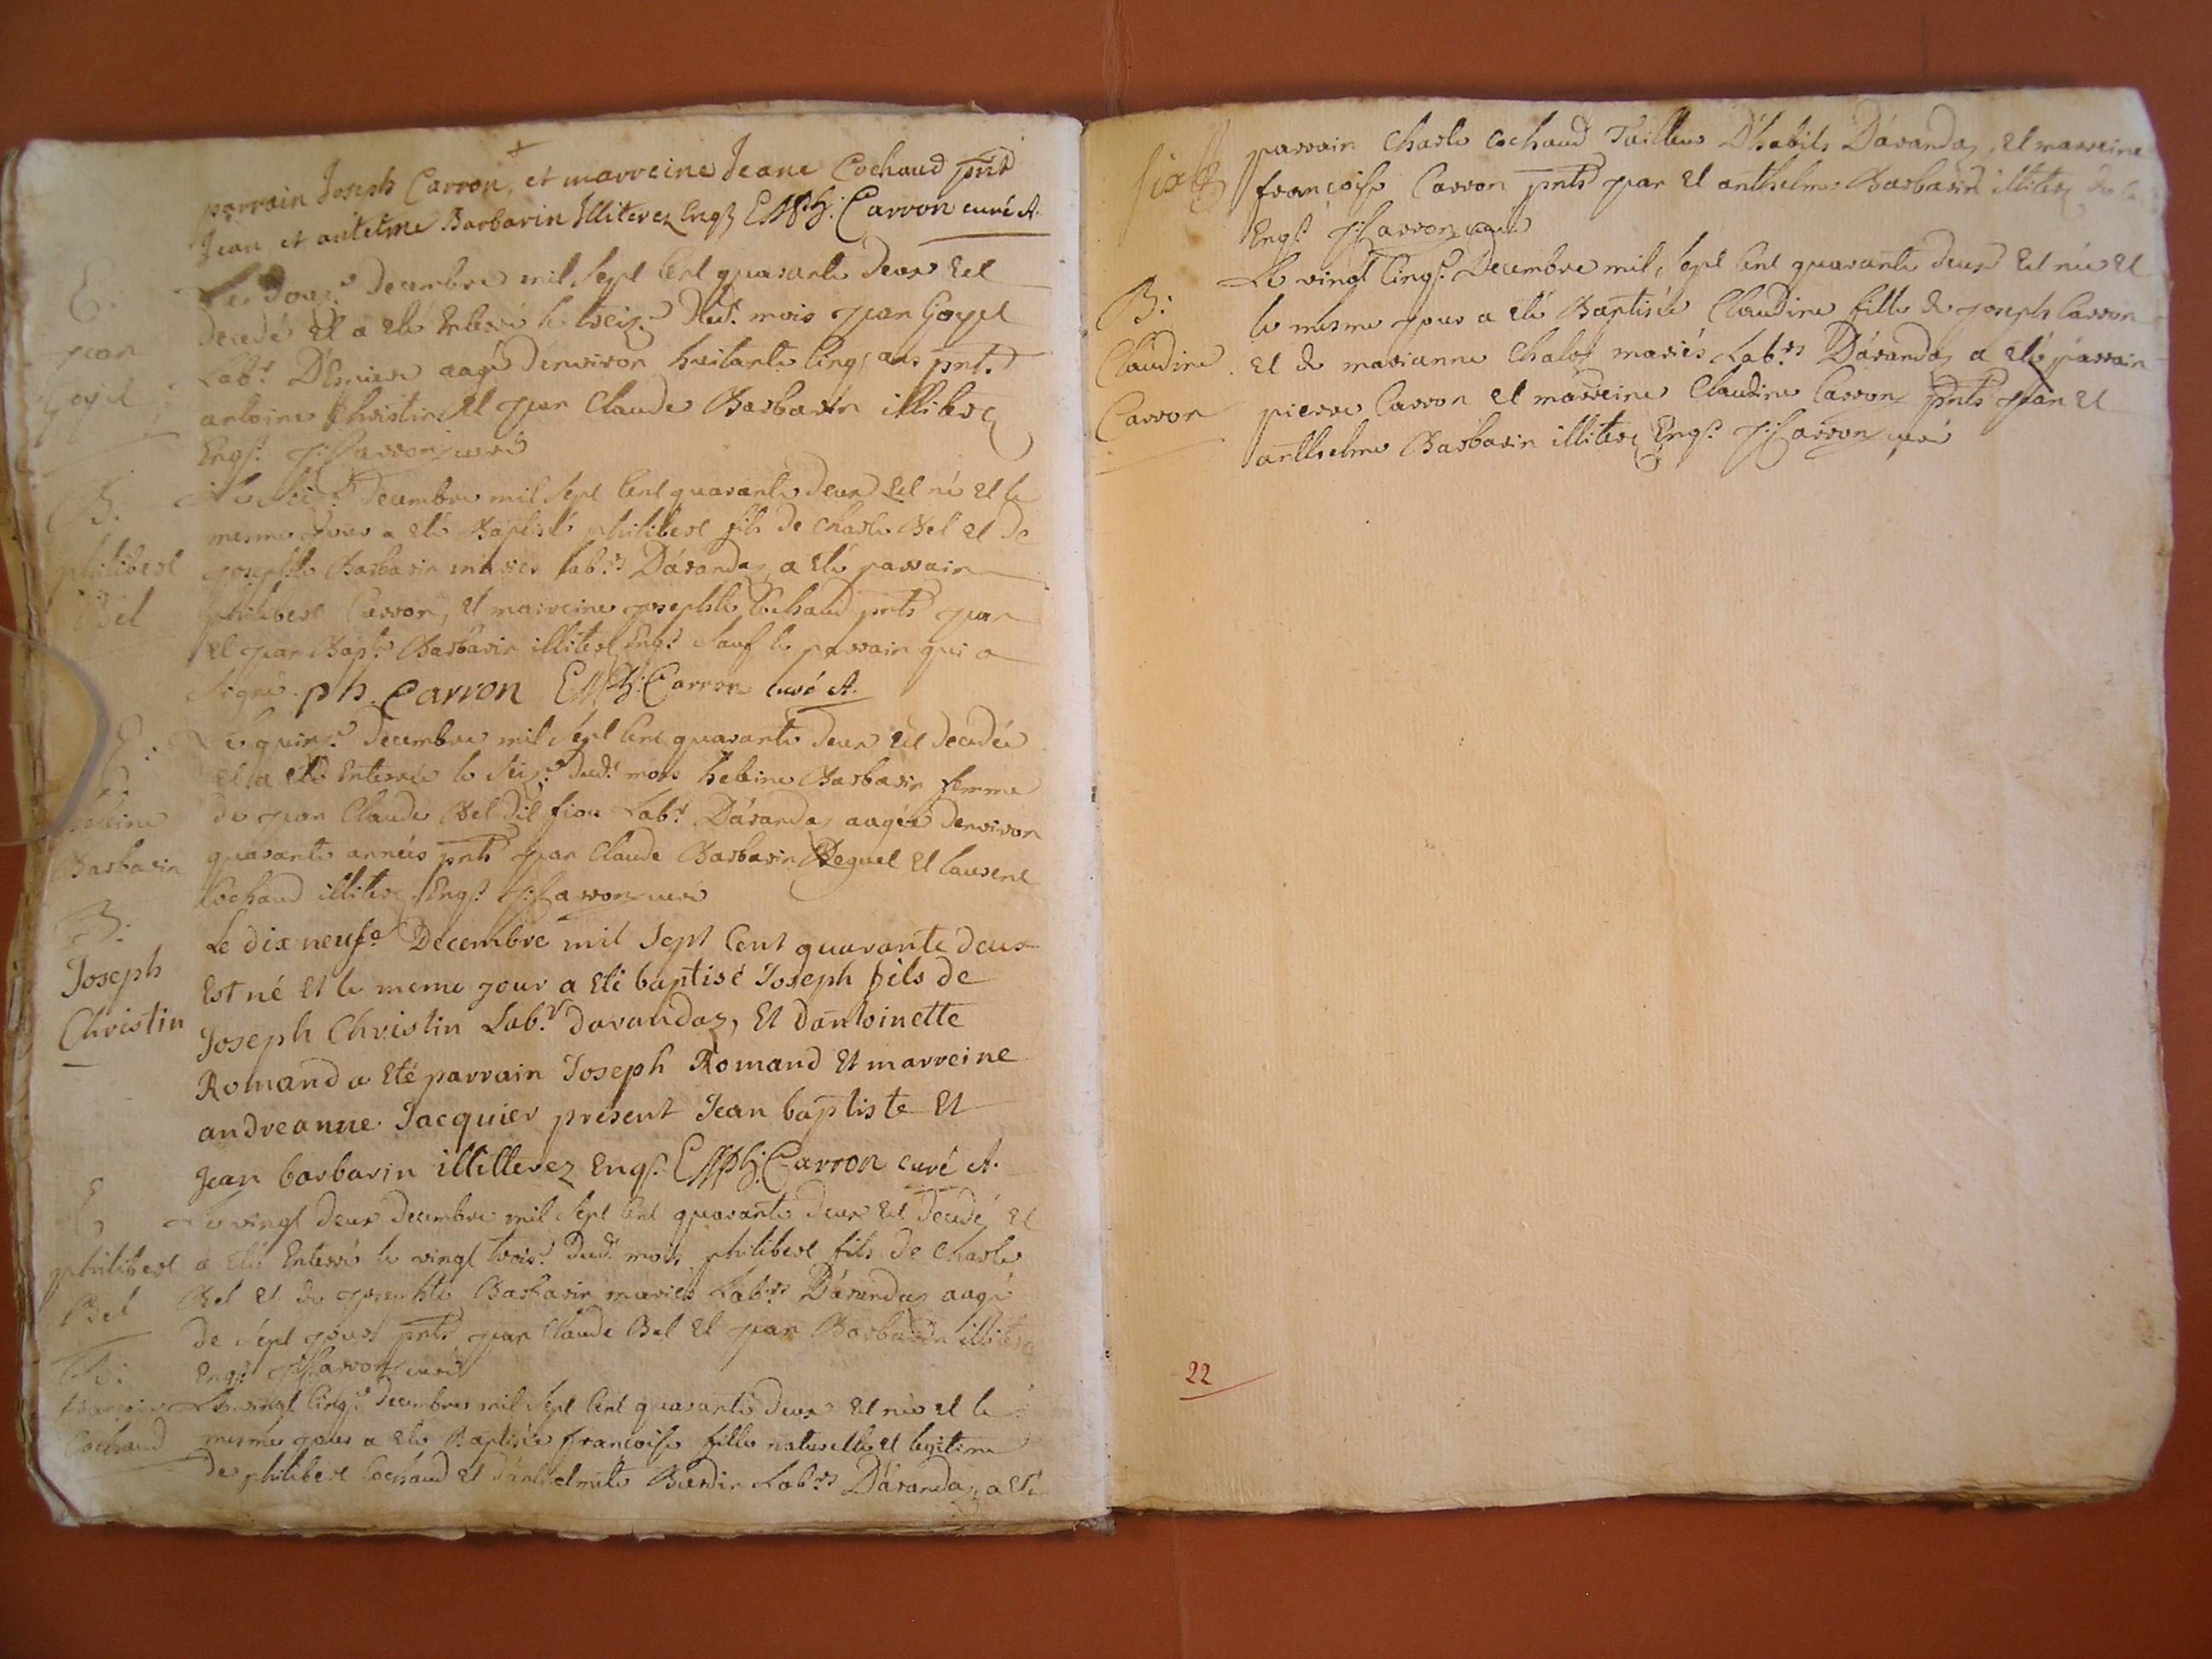 parrain Joseph Carron, et marreine Jeane Cochaud pnt
Jean et antelme Barbarin Illiterez Engs EMPh: Carron curé A.
E.
Jean
Goyel
Le douze Decembre mil sept Cent quarante deux Est
decedé Et a eté Enterré le treize dud.t mois Jean Goyel
Lab.r D'Espier aagé denviron huitante Cinq ans pnts
antoine Christin Et Jean Claude Barbarin illiterez
Engs. J: Carron curé
B.
philibert
Bel
Decembre mil sept Cent quarante deux Est né Et le
mesme Jour a eté Baptisé philibert fils de Charle Bel Et de
Josephte Barbarin mariés Lab.rs D'árandaz, a eté parrain
philibert Carron, Et marreine Josephte Cochaud pnts Jean
Et Jean Bapt.e Barbarin illiterez Engs. Sauf le parrain qui a
signé. ph. Carron EMPh: Carron curé A.
E:
heleine
Barbarin
Le quinz.e Decembre mil sept Cent quarante deux Est decedée
Et a eté Enterrée le seiz.e dud.t mois heleine Barbarin femme
de Jean Claude Bel dit fion Lab.r D'árandaz aagée denviron
quarante années pnts Jean Claude Barbarin Beguet Et Laurent
Cochaud illiterez. Engs. J: Carron curé
B.
Joseph
Christin
Le dix neuf.e Decembre mil Sept Cent quarante deux
Est né Et le meme jour a Eté baptisé Joseph fils de
Joseph Christin Lab.r darandaz, Et dantoinette
Romand a Eté parrain Joseph Romand Et marreine
andreanne Jacquier présent Jean baptiste Et
Jean barbarin illitterez Engs. EMPh: Carron curé A.
E
philibert
Bel
Le vingt deux decembre mil sept Cent quarante deux Est decedé Et
a eté Enterré le vingt trois.e dud.t mois philibert fils de Charle
Bel Et de Josephte Barbarin mariés Lab.rs D'árandaz aagé
de sept jours pnts Jean Claude Bel Et Jean Barbarin illiterez
Engs. J: Carron curé
B:
francoise
Cochaud
Le vingt Cinq.e Decembre mil sept Cent quarante deux Est née Et le
mesme jour a eté Baptisée francoise fille naturelle Et legitime
de philibert Cochaud Et D'anthelmete Burdin Lab.rs D'árandaz, a eté
parrain Charle Cochaud Tailleur D'habits D'árandaz, Et marreine
françoise Carron pnts Jean Et anthelme Barbarin illiterez de ce
Engs. J: Carron curé
B:
Claudine
Carron
Le vingt Cinq.e Decembre mil sept Cent quarante deux Est née Et
le mesme jour a eté Baptisée Claudine fille de Joseph Carron
Et de marianne Chaley mariés Lab.rs D'árandaz a eté parrain
pierre Carron Et marreine Claudine Carron pnts Jean Et
anthelme Barbarin illiterez Engs. J: Carron curé
22